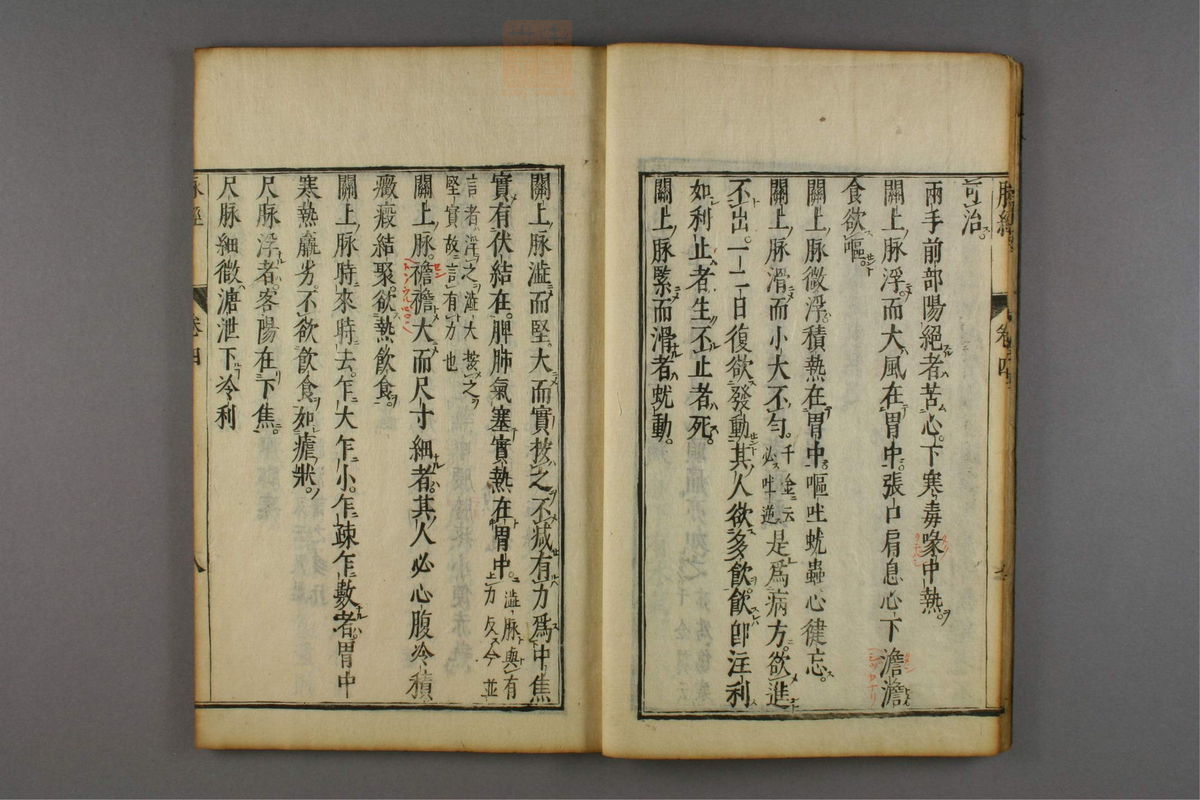 脉經
卷四
七
可治。
兩手前部陽絕者苦心下寒毒喙中熱。
關上脉浮而大風在胃中張口肩息心下澹澹
食欲嘔。
關上脉微浮積熱在胃中嘔吐蚘蟲心健忘。
關上脉滑而小大不勻。千金云必吐逆是爲病方欲進
不出一二日復欲發動其人欲多飲飲卽注利
如利止者生不止者死。
關上脉緊而滑者蚘動。
關上脉澁而堅大而實按之不減有力爲中焦
實有伏結在脾肺氣塞實熱在胃中。澁脉與有力反今並
言者浮之澁大按之
堅實故言有力也
關上脉襜襜大而尺寸細者其人必心腹冷積
癥瘕結聚欲熱飲食。
關上脉時來時去乍大乍小乍踈乍數者胃中
寒熱羸劣不欲飲食如瘧狀。
尺脉浮者客陽在下焦。
尺脉細微溏泄下冷利
脉經
卷四
八